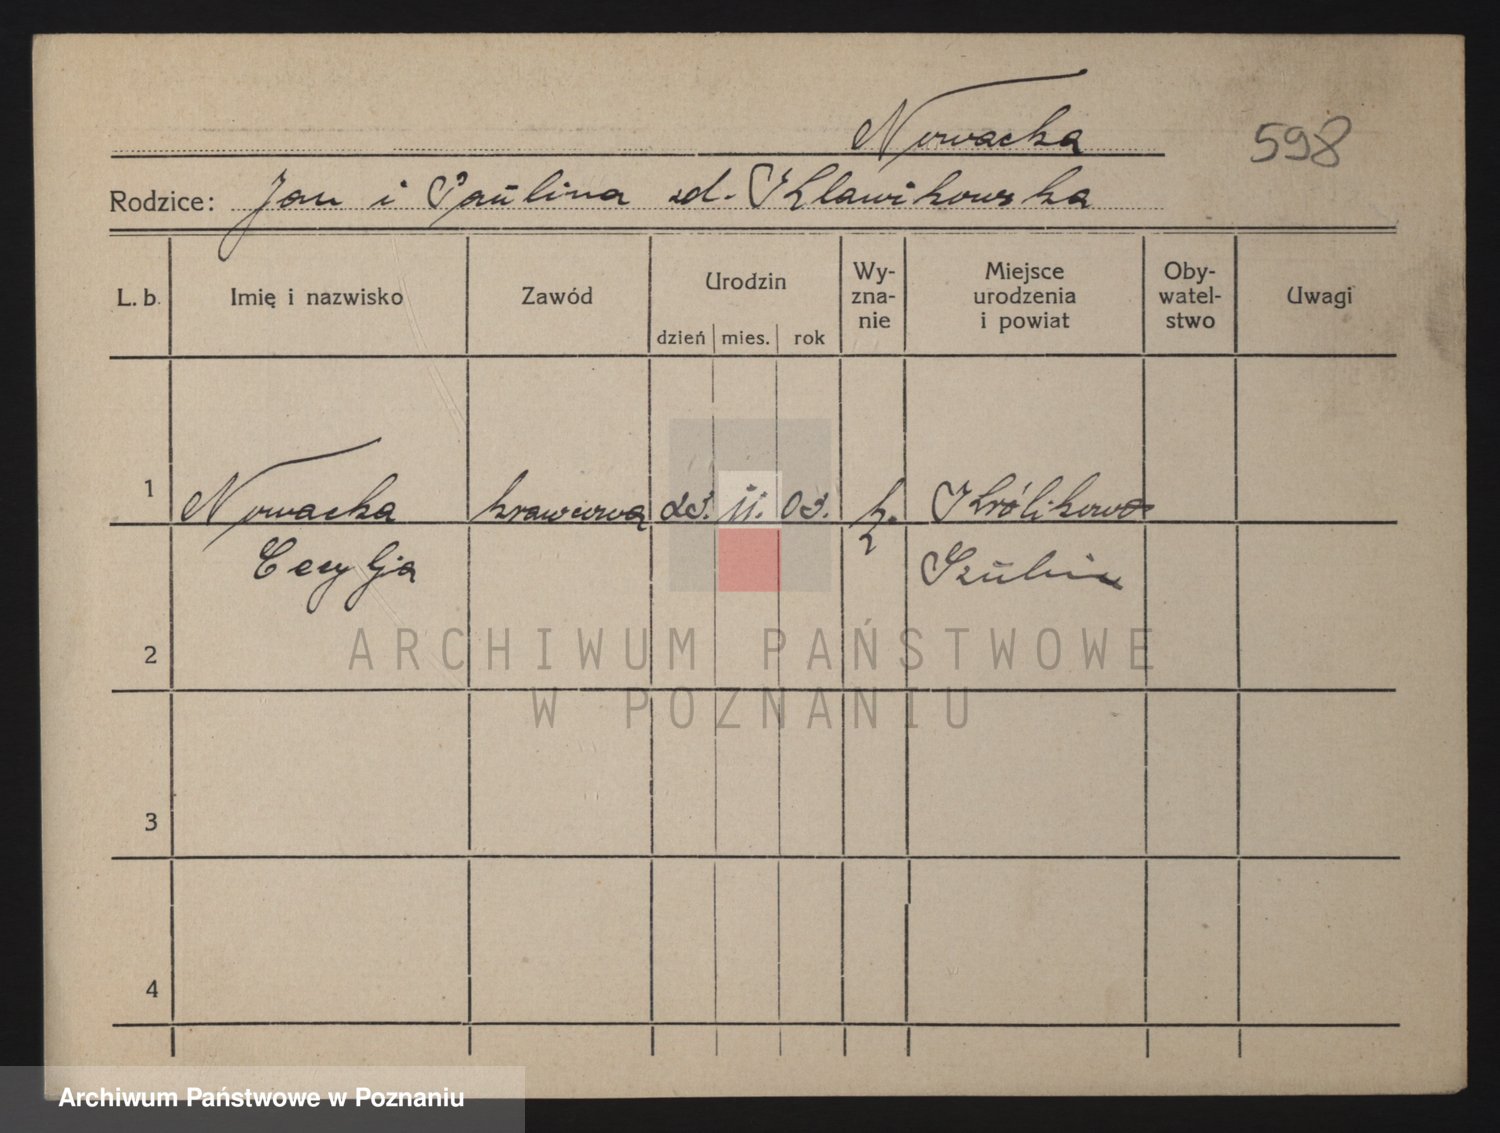 Nowacka
598
Rodzice: Jan i Paulina zd. Klawikowska
L. b. Imię i nazwisko Zawód Urodzin dzień mies. rok Wy-zna-nie Miejsce urodzenia i powiat Oby-watel-stwo Uwagi
1 Nowacka krawcowa 23. 11. 03. k. Królikowo
Cecylja Szubin
2
ARCHIWUM PAŃSTWOWE
W POZNANIU
3
4
Archiwum Państwowe w Poznaniu